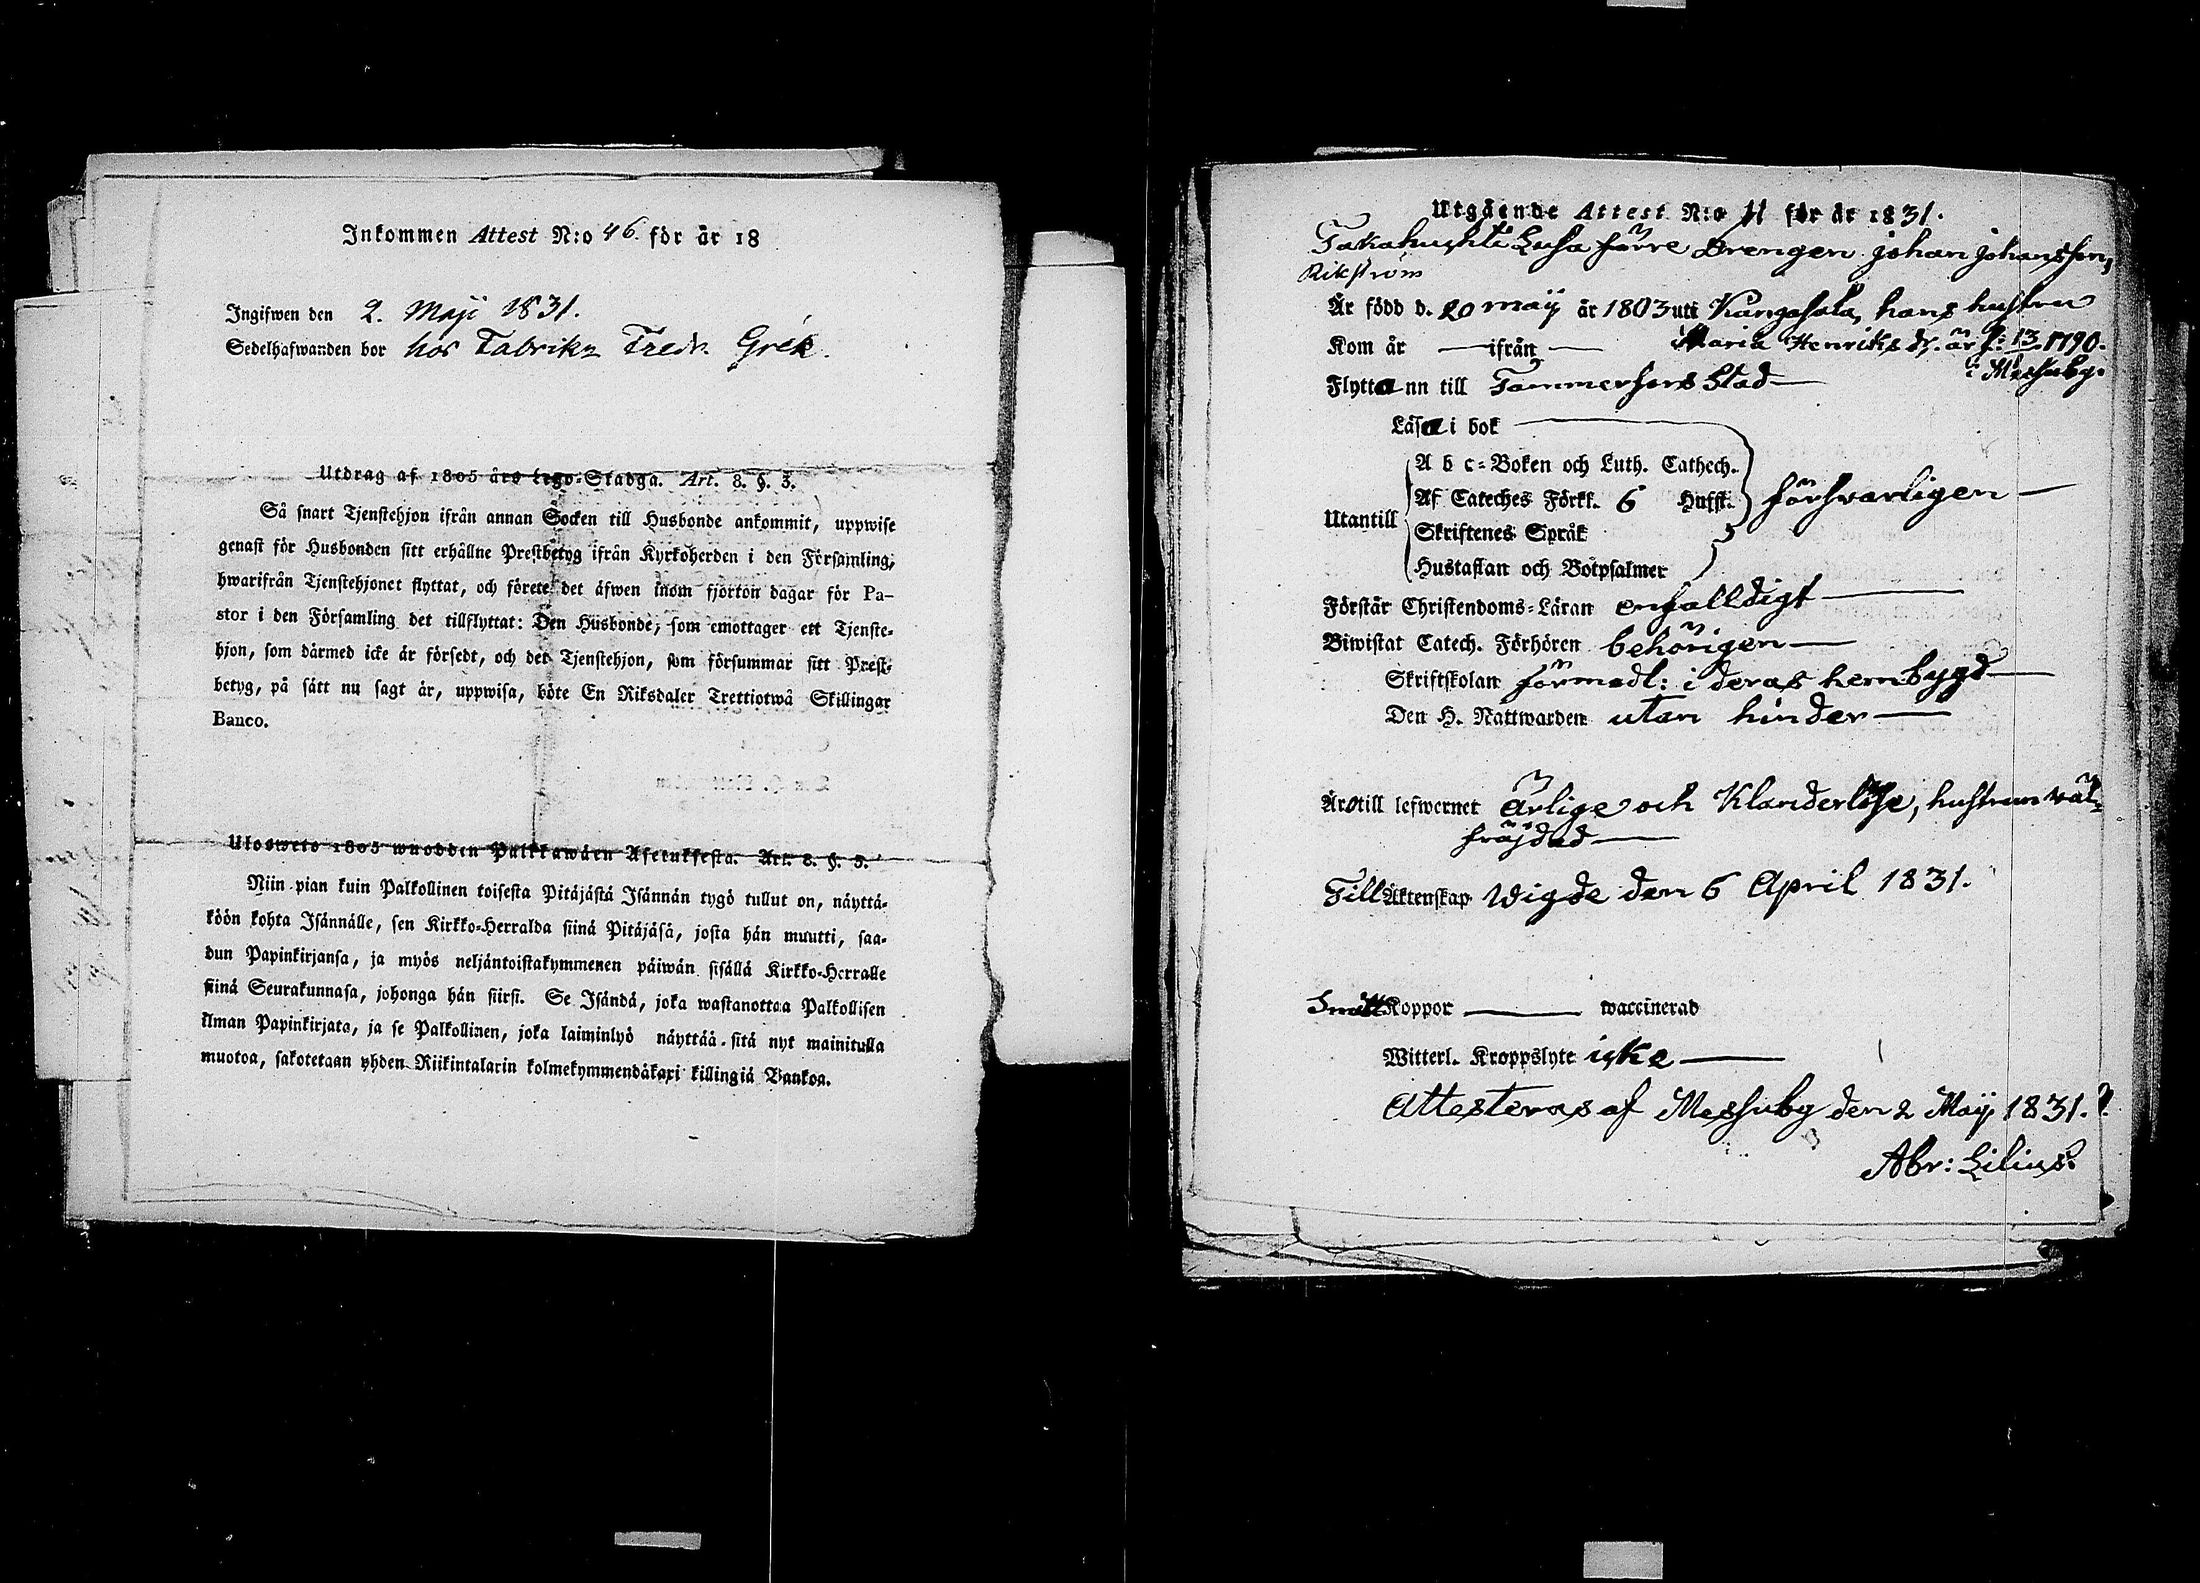 Inkommen Attest N:o 46. för år 18
Ingifwen den 2. Maji 1831.
Sedelhafwanden bor hos Fabrikn Fredr. Grék.
Utdrag af 1805 års Lego-Stadga. Art. 8. §. 3.
Så snart Tjenstehjon ifrån annan Socken till Husbonde ankommit, uppwise
genast för Husbonden sitt erhållne Prestbetyg ifrån Kyrkoherden i den Församling,
hwarifrån Tjenstehjonet flyttat, och förete det äfwen inom fjorton dagar för Pa-
stor i den Församling det tillflyttat: Den Husbonde, som emottager ett Tjenste-
hjon, som därmed icke är försedt, och det Tjenstehjon, som försummar sitt Prest-
betyg, på sätt nu sagt är, uppwisa, böte En Riksdaler Trettiotwå Skillingar
Banco.
Ulosweto 1805 wuodden Palkkawäen Asetuksesta. Art. 8. §. 3.
Niin pian kuin Palkollinen toisesta Pitäjästä Isännän tygö tullut on, näyttä-
köön kohta Isännälle, sen Kirkko-Herralda siinä Pitäjäsä, josta hän muutti, saa-
dun Papinkirjansa, ja myös neljäntoistakymmenen päiwän sisällä Kirkko-Herralle
siinä Seurakunnasa, johonga hän siirsi. Se Isändä, joka wastanottaa Palkollisen
ilman Papinkirjata, ja se Palkollinen, joka laiminlyö näyttää sitä nyt mainitulla
muotoa, sakotetaan yhden Riikintalarin kolmekymmendäkaxi killingiä Bankoa.
Utgående Attest N:o 11 för år 1831.
Takahuhti Lusa förre Drengen Johan Johansson,
Rikström
Är född d. 20 maÿ år 1803 uti Kangasala, hans hustru
Kom år — ifrån — Maria Henriks dr. är f: 13 1790.
i Messuby.
Flytta nn till Tammerfors Stad —
Läsa i bok
A b c-Boken och Luth. Cathech.
Af Cateches Förkl. 6 Hufst. försvarligen —
Utantill
Skriftenes Språk
Hustaflan och Botpsalmer
Förstår Christendoms-Läran enfalldigt —
Biwistat Catech. Förhören behörigen —
Skriftskolan förmodl: i deras hembygd —
Den H. Nattwarden utan hinder —
Äro till lefwernet ärlige och Klanderlöse, hustrun väl-
fräjdad —
Till Äktenskap Wigde den 6 April 1831.
Smått Koppor — waccinerad
Witterl. Kroppslyte icke —
Attesteras af Messuby den 2 Maÿ 1831.
Abr: Lilius.